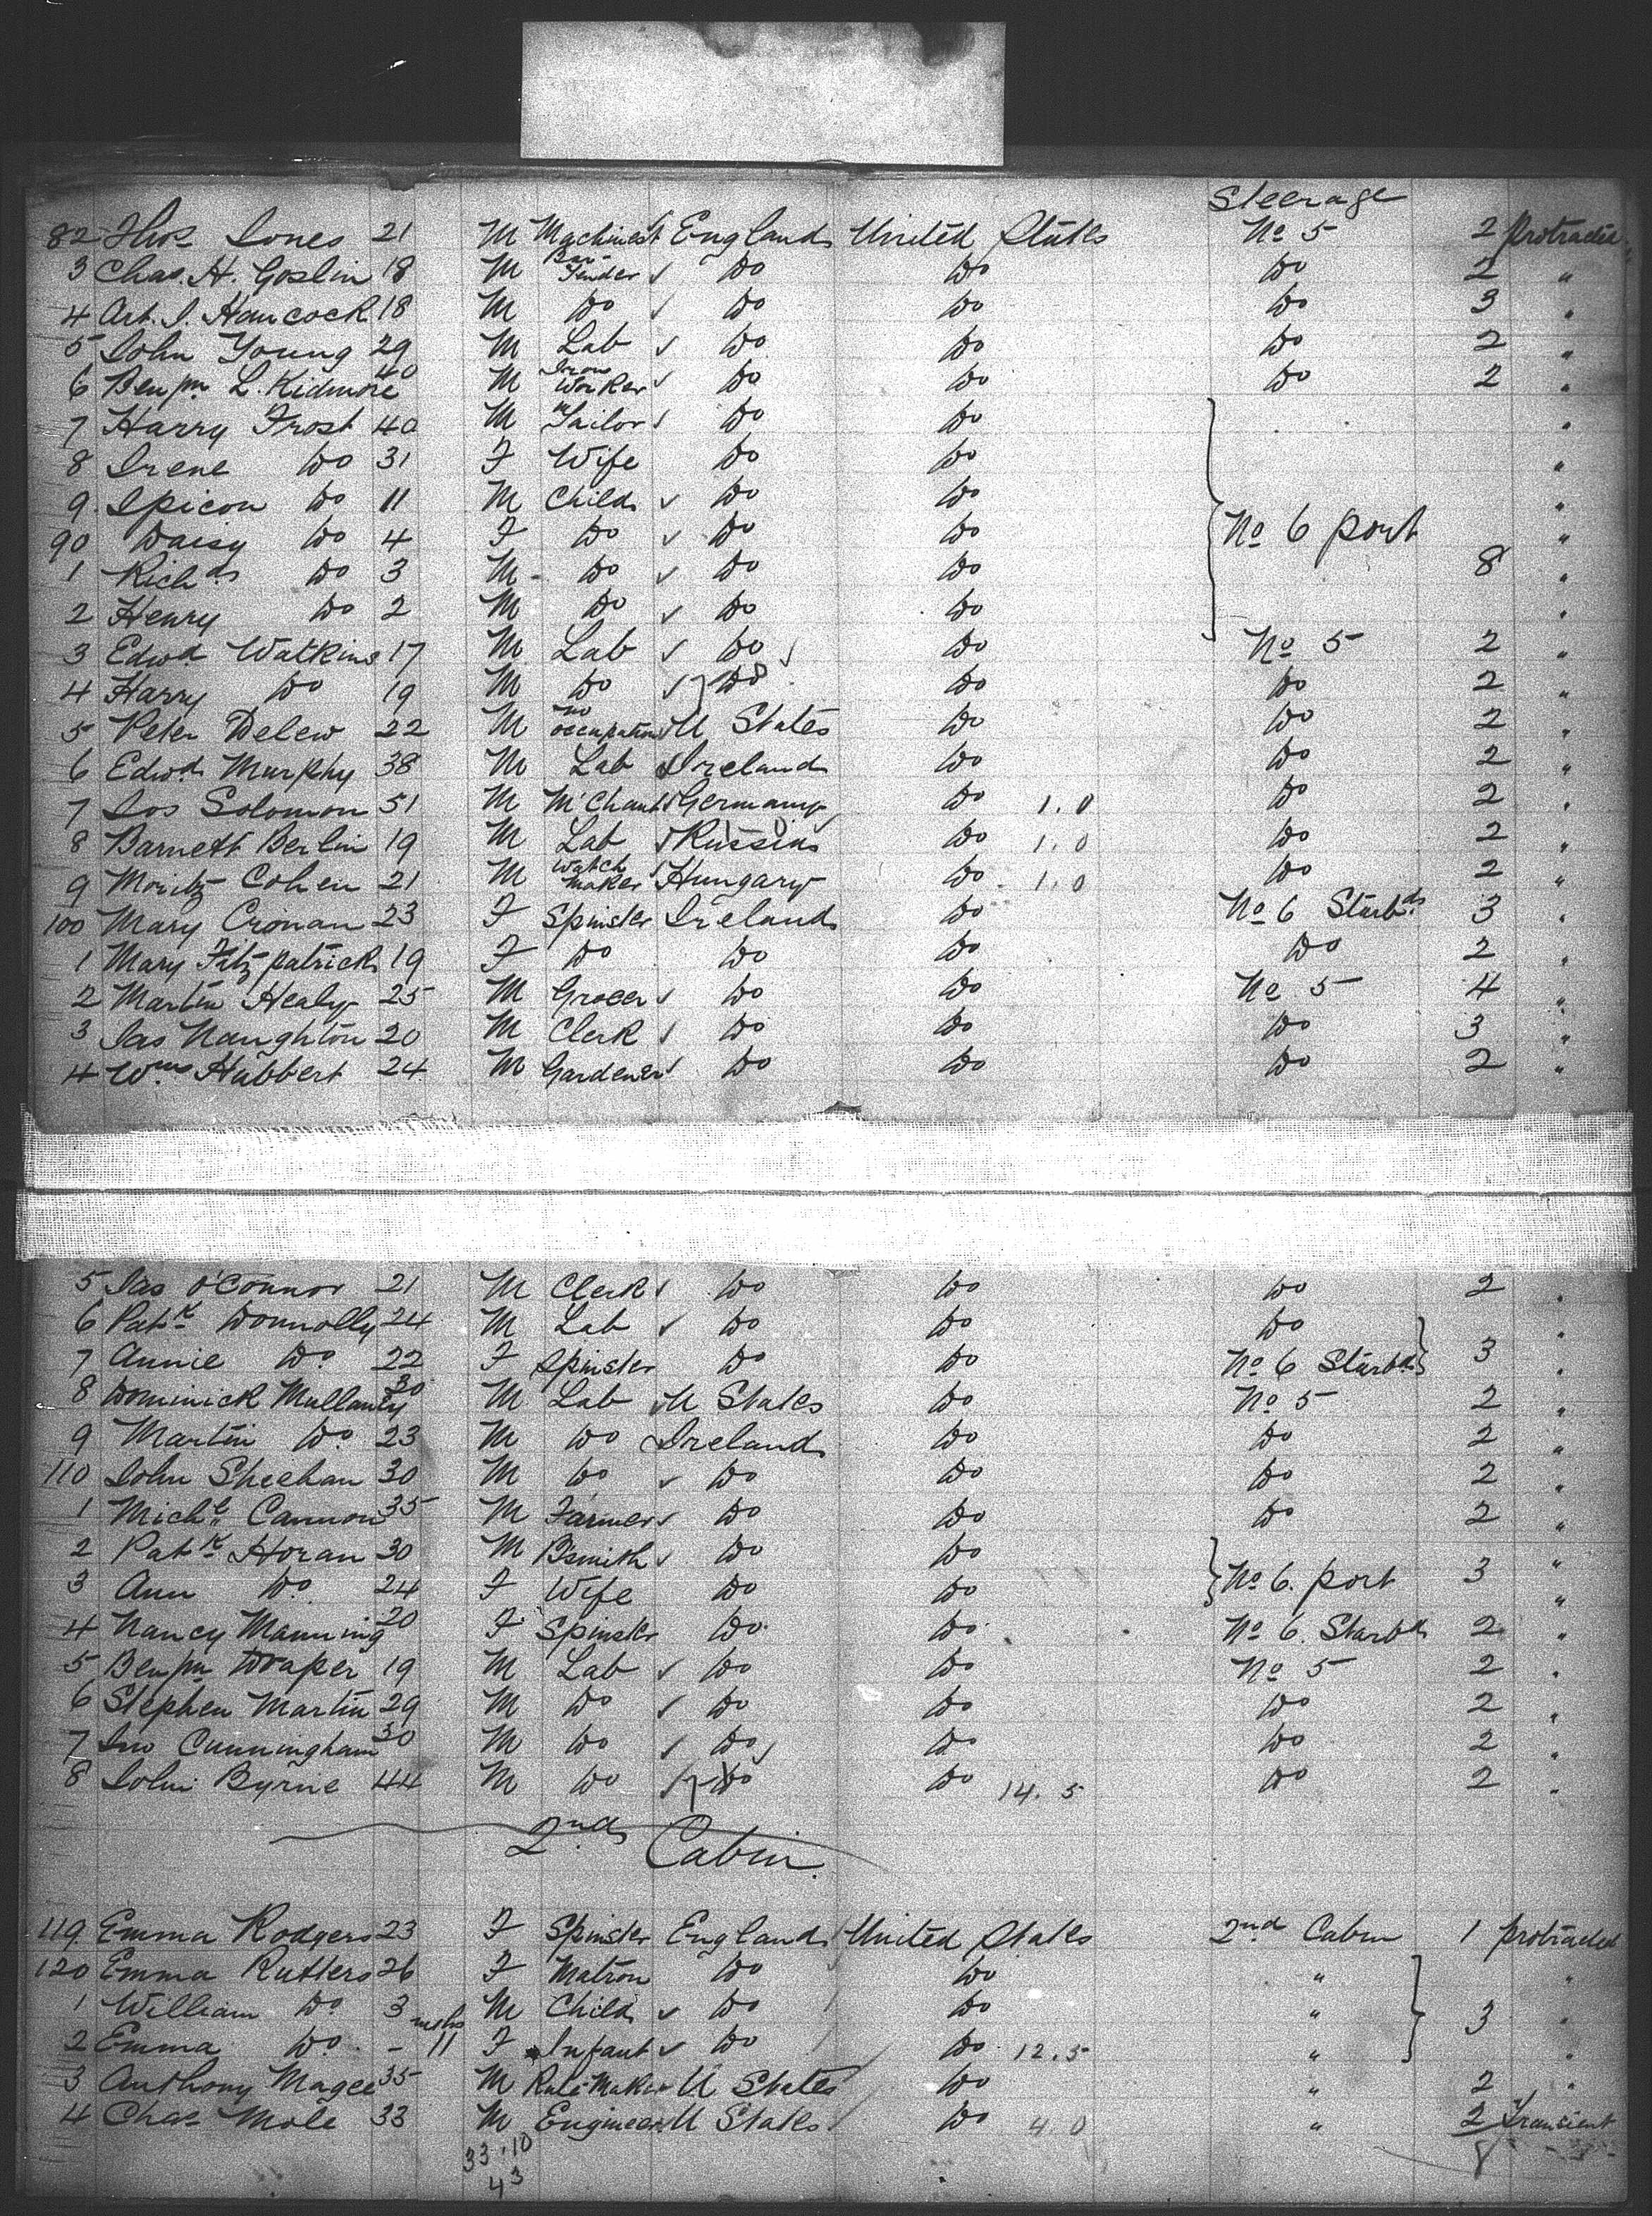 Steerage
82 Thos Jones 21 M Machinest England United States No 5 2 Protracted
3 Chas. H. Goslin 18 M Bar-Tender Do Do Do 2 "
4 Art. J. Hancock 18 M Do Do Do Do 3 "
5 John Young 29 M Lab Do Do Do 2 "
6 Benjn L. Kidmore 40 M Iron Worker Do Do Do 2 "
7 Harry Frost 40 M Tailor Do Do "
8 Irene Do 31 F Wife Do Do "
9 Spicon Do 11 M Child Do Do "
90 Daisy Do 4 F Do Do Do No 6 port "
1 Richd Do 3 M Do Do Do 8 "
2 Henry Do 2 M Do Do Do "
3 Edwd Watkins 17 M Lab Do Do No 5 2 "
4 Harry Do 19 M Do Do Do Do 2 "
5 Peter Delew 22 M no occupation U States Do Do 2 "
6 Edwd Murphy 38 M Lab Ireland Do Do 2 "
7 Jos Solomon 51 M M'Chant Germany Do 1.0 Do 2 "
8 Barnett Berlin 19 M Lab Russia Do 1.0 Do 2 "
9 Moritz Cohen 21 M Watch Maker Hungary Do 1.0 Do 2 "
100 Mary Cronan 23 F Spinster Ireland Do No 6 Starbd 3 "
1 Mary Fitzpatrick 19 F Do Do Do Do 2 "
2 Martin Healy 25 M Grocer Do Do No 5 4 "
3 Jas Naughton 20 M Clerk Do Do Do 3 "
4 Wm Hubbert 24 M Gardener Do Do Do 2 "
5 Jas O'Connor 21 M Clerk Do Do Do 2 "
6 Patk Donnolly 24 M Lab Do Do Do "
7 Annie Do 22 F Spinster Do Do No 6 Starbd 3 "
8 Dominick Mullanly 30 M Lab U States Do No 5 2 "
9 Martin Do 23 M Do Ireland Do Do 2 "
110 John Sheehan 30 M Do Do Do Do 2 "
1 Michl Cannon 35 M Farmer Do Do Do 2 "
2 Patk Horan 30 M Bsmith Do Do "
3 Ann Do 24 F Wife Do Do No 6. port 3 "
4 Nancy Manning 20 F Spinster Do Do No 6. Starbd 2 "
5 Benjn Draper 19 M Lab Do Do No 5 2 "
6 Stephen Martin 29 M Do Do Do Do 2 "
7 Jno Cunningham 30 M Do Do Do Do 2 "
8 John Byrne 44 M Do Do Do 14.5 Do 2 "
2nd Cabin
119 Emma Rodgers 23 F Spinster England United States 2nd Cabin 1 protracted
120 Emma Rutters 26 F Matron Do Do " "
1 William Do 3 M Child Do Do " 3 "
2 Emma Do - 11 mths F Infant Do Do 12.5 " "
3 Anthony Magee 35 M Rule Maker U States Do " 2 "
4 Chas Mole 33 M Engineer U States Do 4.0 " 2 Transient
33.10 8
43